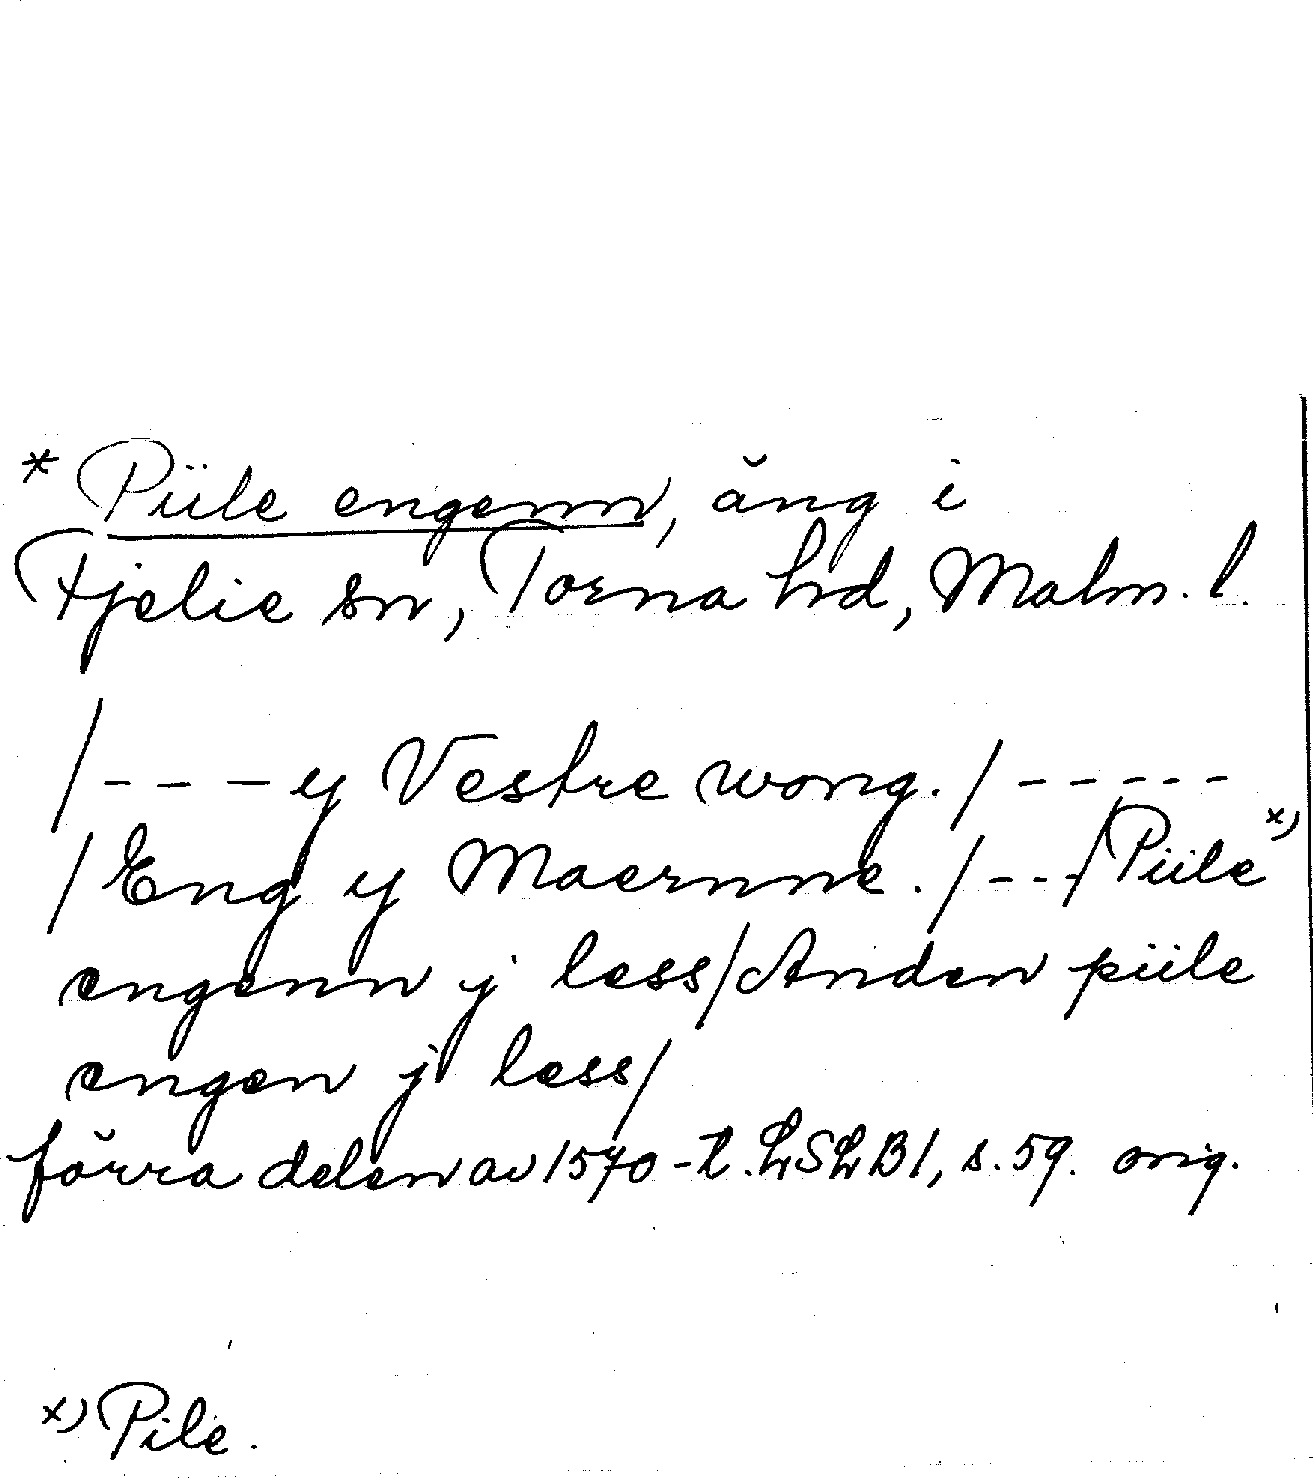 * Piile engenn, äng i
Fjelie sn, Torna hd, Malm. l.
/---y Vestre wong./-----
/Eng y Maernne./---/Piile x)
engenn j less/Anden piile
engen j less/
förra delen av 1570-t. LSLB1, s.59. orig.
x) Pile.